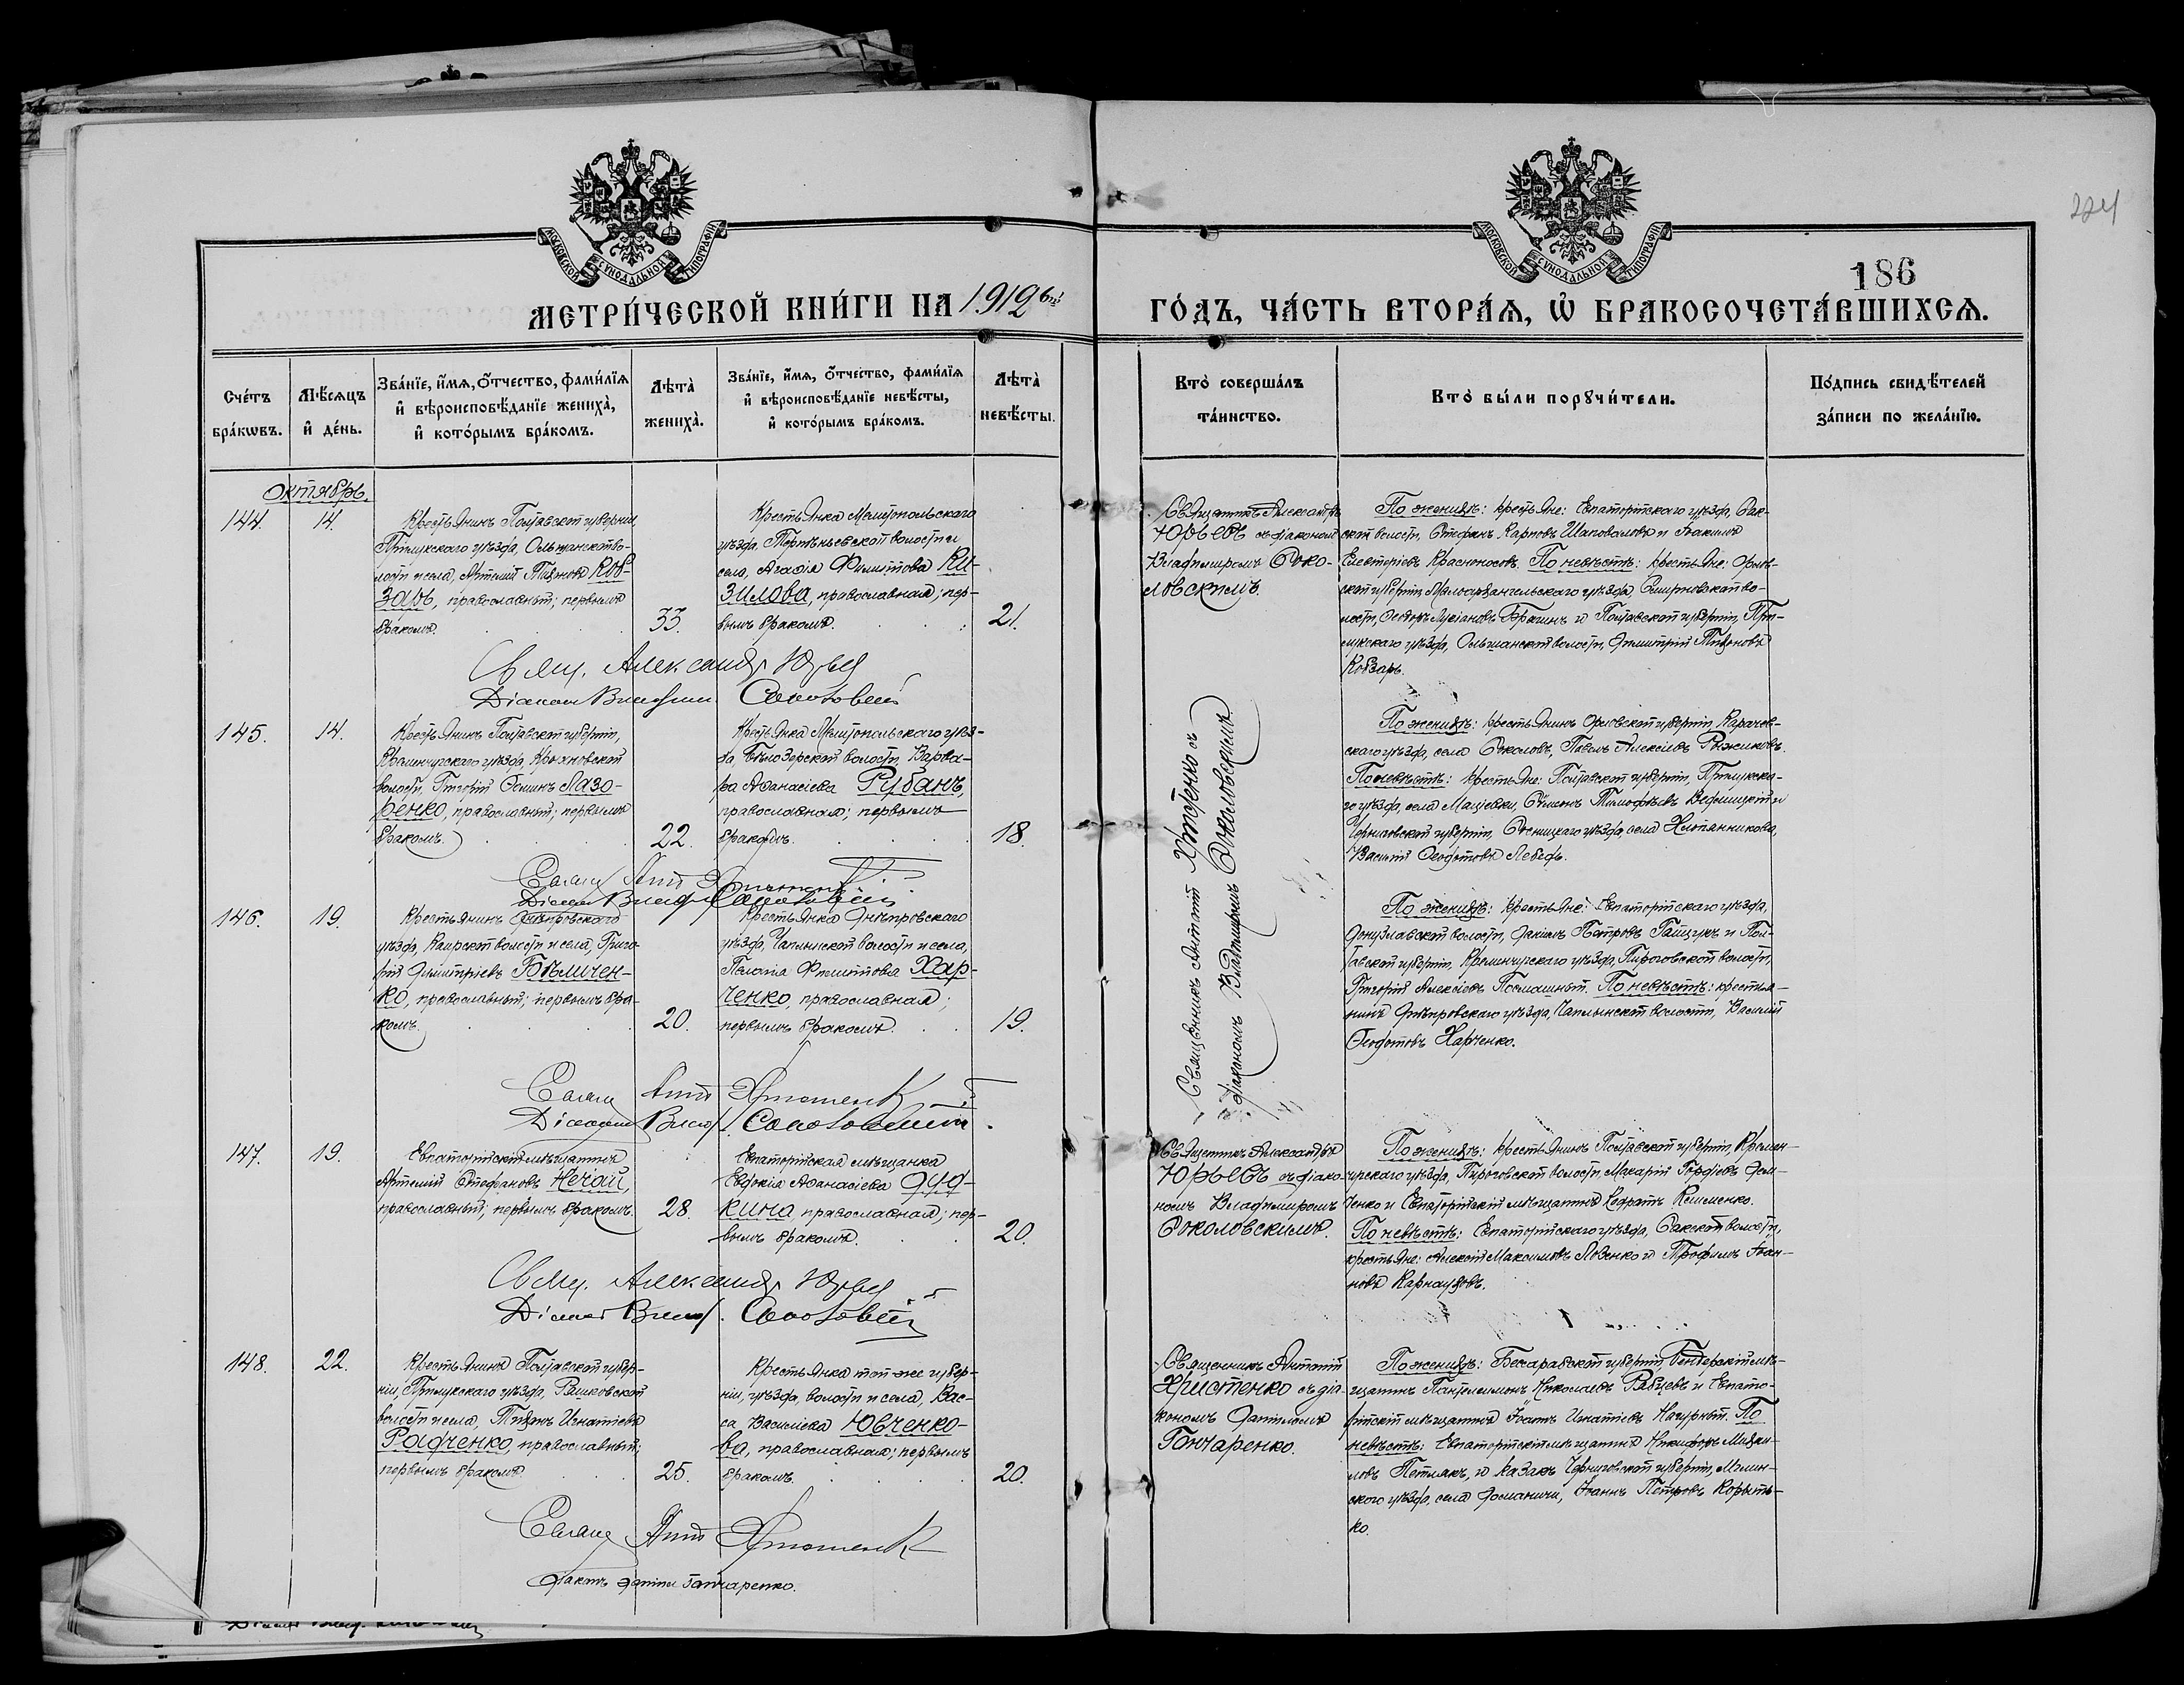 224
186
МОСКОВСКОЙ СѴНОДАЛЬНОЙ ТИПОГРАФІИ
МОСКОВСКОЙ СѴНОДАЛЬНОЙ ТИПОГРАФІИ
МЕТРИ́ЧЕСКОЙ КНИ́ГИ НА 1912
ГО́ДЪ, ЧА́СТЬ ВТОРА́Ѧ, Ѡ҆ БРАКОСОЧЕТА́ВШИХСѦ.
Сче́тъ бра́кѡвъ.
Мѣ́сяцъ и҆ де́нь.
Зва́нїе, и҆́мѧ, ѻ҆́тчество, фами́лїѧ
и҆ вѣроисповѣ́данїе жениха̀,
и҆ кото́рымъ бра́комъ.
Лѣта̀ жениха̀.
Зва́нїе, и҆́мѧ, ѻ҆́тчество, фами́лїѧ
и҆ вѣроисповѣ́данїе невѣ́сты,
и҆ кото́рымъ бра́комъ.
Лѣта̀ невѣ́сты.
Кто̀ соверша́лъ та́инство.
Кто̀ бы́ли порꙋчи́тели.
По́дпись свидѣ́телей за́писи по жела́нїю.
Октябрь.
144. 14.
Крестьянинъ Полтавской губерніи,
Прилукскаго уѣзда, Ольшанской во-
лости и села, Тихоновъ Коб-
зарь, православный; первымъ
бракомъ. 33.
Крестьянка Мелитопольскаго
уѣзда, волости и
села, Агафія Филиппова Ки-
зилова, православная; пер-
вымъ бракомъ. 21.
Священникъ Александръ
Юрьевъ съ діакономъ
Владимиромъ Соко-
ловскимъ.
По женихѣ: крестьяне: Евпаторійскаго уѣзда, Сак-
ской волости, Стефанъ Карповъ Шаповаловъ и Іоакимъ
Елевѳеріевъ Красноносовъ. По невѣстѣ: крестьяне: Орлов-
ской губерніи, Малоархангельскаго уѣзда, во-
лости, Ѳеодоръ Лукіановъ и Полтавской губерніи, При-
лукскаго уѣзда, Ольшанской волости, Димитрій Тихоновъ
Кобзарь.
Свящ. Александръ Юрьевъ
Діаконъ Влад. Соколовскій
145. 14.
Крестьянинъ Полтавской губерніи,
Кременчугскаго уѣзда,
волости, Григорій Лазо-
ренко, православный; первымъ
бракомъ. 22.
Крестьянка Мелитопольскаго уѣз-
да, Бѣлозерской волости, Варва-
ра Аѳанасіева Рубанъ,
православная; первымъ
бракомъ. 18.
Священникъ Антоній Христенко съ
діакономъ Владимиромъ Соколовскимъ.
По женихѣ: крестьянинъ Орловской губерніи, Карачев-
скаго уѣзда, села Соколовъ, Павелъ Алексіевъ Рыжиковъ.
По невѣстѣ: крестьяне: Полтавской губерніи, Прилукска-
го уѣзда, села Мацѣевки, Сѵмеонъ Тимофѣевъ и
Черниговской губерніи, Сосницкаго уѣзда, села
Василій Ѳеодотовъ Лебедь.
Свящ. Ант. Христенко
Діаконъ Влад. Соколовскій
146. 19.
Крестьянинъ Днѣпровскаго
уѣзда, Каирской волости и села, Григо-
рій Димитріевъ Бѣличен-
ко, православный; первымъ бра-
комъ. 20.
Крестьянка Днѣпровскаго
уѣзда, Чаплынской волости и села,
Пелагія Филиппова Хар-
ченко, православная;
первымъ бракомъ. 19.
По женихѣ: крестьяне: Евпаторійскаго уѣзда,
Донузлавской волости, Петровъ и Пол-
тавской губерніи, Кременчугскаго уѣзда, Пироговской волости,
Григорій Алексіевъ Посмашный. По невѣстѣ: крестья-
нинъ Днѣпровскаго уѣзда, Чаплынской волости, Василій
Ѳеодотовъ Харченко.
Свящ. Ант. Христенко
Діаконъ Влад. Соколовскій.
147. 19.
Евпаторійскій мѣщанинъ
Артемій Стефановъ Нечай,
православный; первымъ бракомъ. 28.
Евпаторійская мѣщанка
Евдокія Аѳанасіева Дуд-
кина, православная; пер-
вымъ бракомъ. 20.
Священникъ Александръ
Юрьевъ съ діако-
номъ Владимиромъ
Соколовскимъ.
По женихѣ: крестьянинъ Полтавской губерніи, Кремен-
чугскаго уѣзда, Пироговской волости, Макарій Гордіевъ Дем-
ченко и Евпаторійскій мѣщанинъ Кодратъ Клименко.
По невѣстѣ: Евпаторійскаго уѣзда, Сакской волости,
крестьяне: Алексій Максимовъ Лозенко и Трофимъ Іоан-
новъ Карнауховъ.
Свящ. Александръ Юрьевъ
Діаконъ Влад. Соколовскій
148. 22.
Крестьянинъ Полтавской губер-
ніи, Прилукскаго уѣзда, Рашковской
волости и села, Тихонъ Игнатіевъ
Радченко, православный;
первымъ бракомъ. 25.
Крестьянка той-же губер-
ніи, уѣзда, волости и села, Вас-
са Василіева Ювченко-
ва, православная; первымъ
бракомъ. 20.
Священникъ Антоній
Христенко съ діа-
кономъ Даніиломъ
Гончаренко.
По женихѣ: Бессарабской губерніи, Бендерскій мѣ-
щанинъ Пантелеимонъ Николаевъ Рябцевъ и Евпато-
рійскій мѣщанинъ Іоаннъ Игнатіевъ Нагурный. По
невѣстѣ: Евпаторійскій мѣщанинъ Никифоръ Михаи-
ловъ Петлякъ, и казакъ Черниговской губерніи, Мглин-
скаго уѣзда, села Досмановичи, Іоаннъ Петровъ Корыть-
ко.
Свящ. Ант. Христенко
Діаконъ Даніилъ Гончаренко.